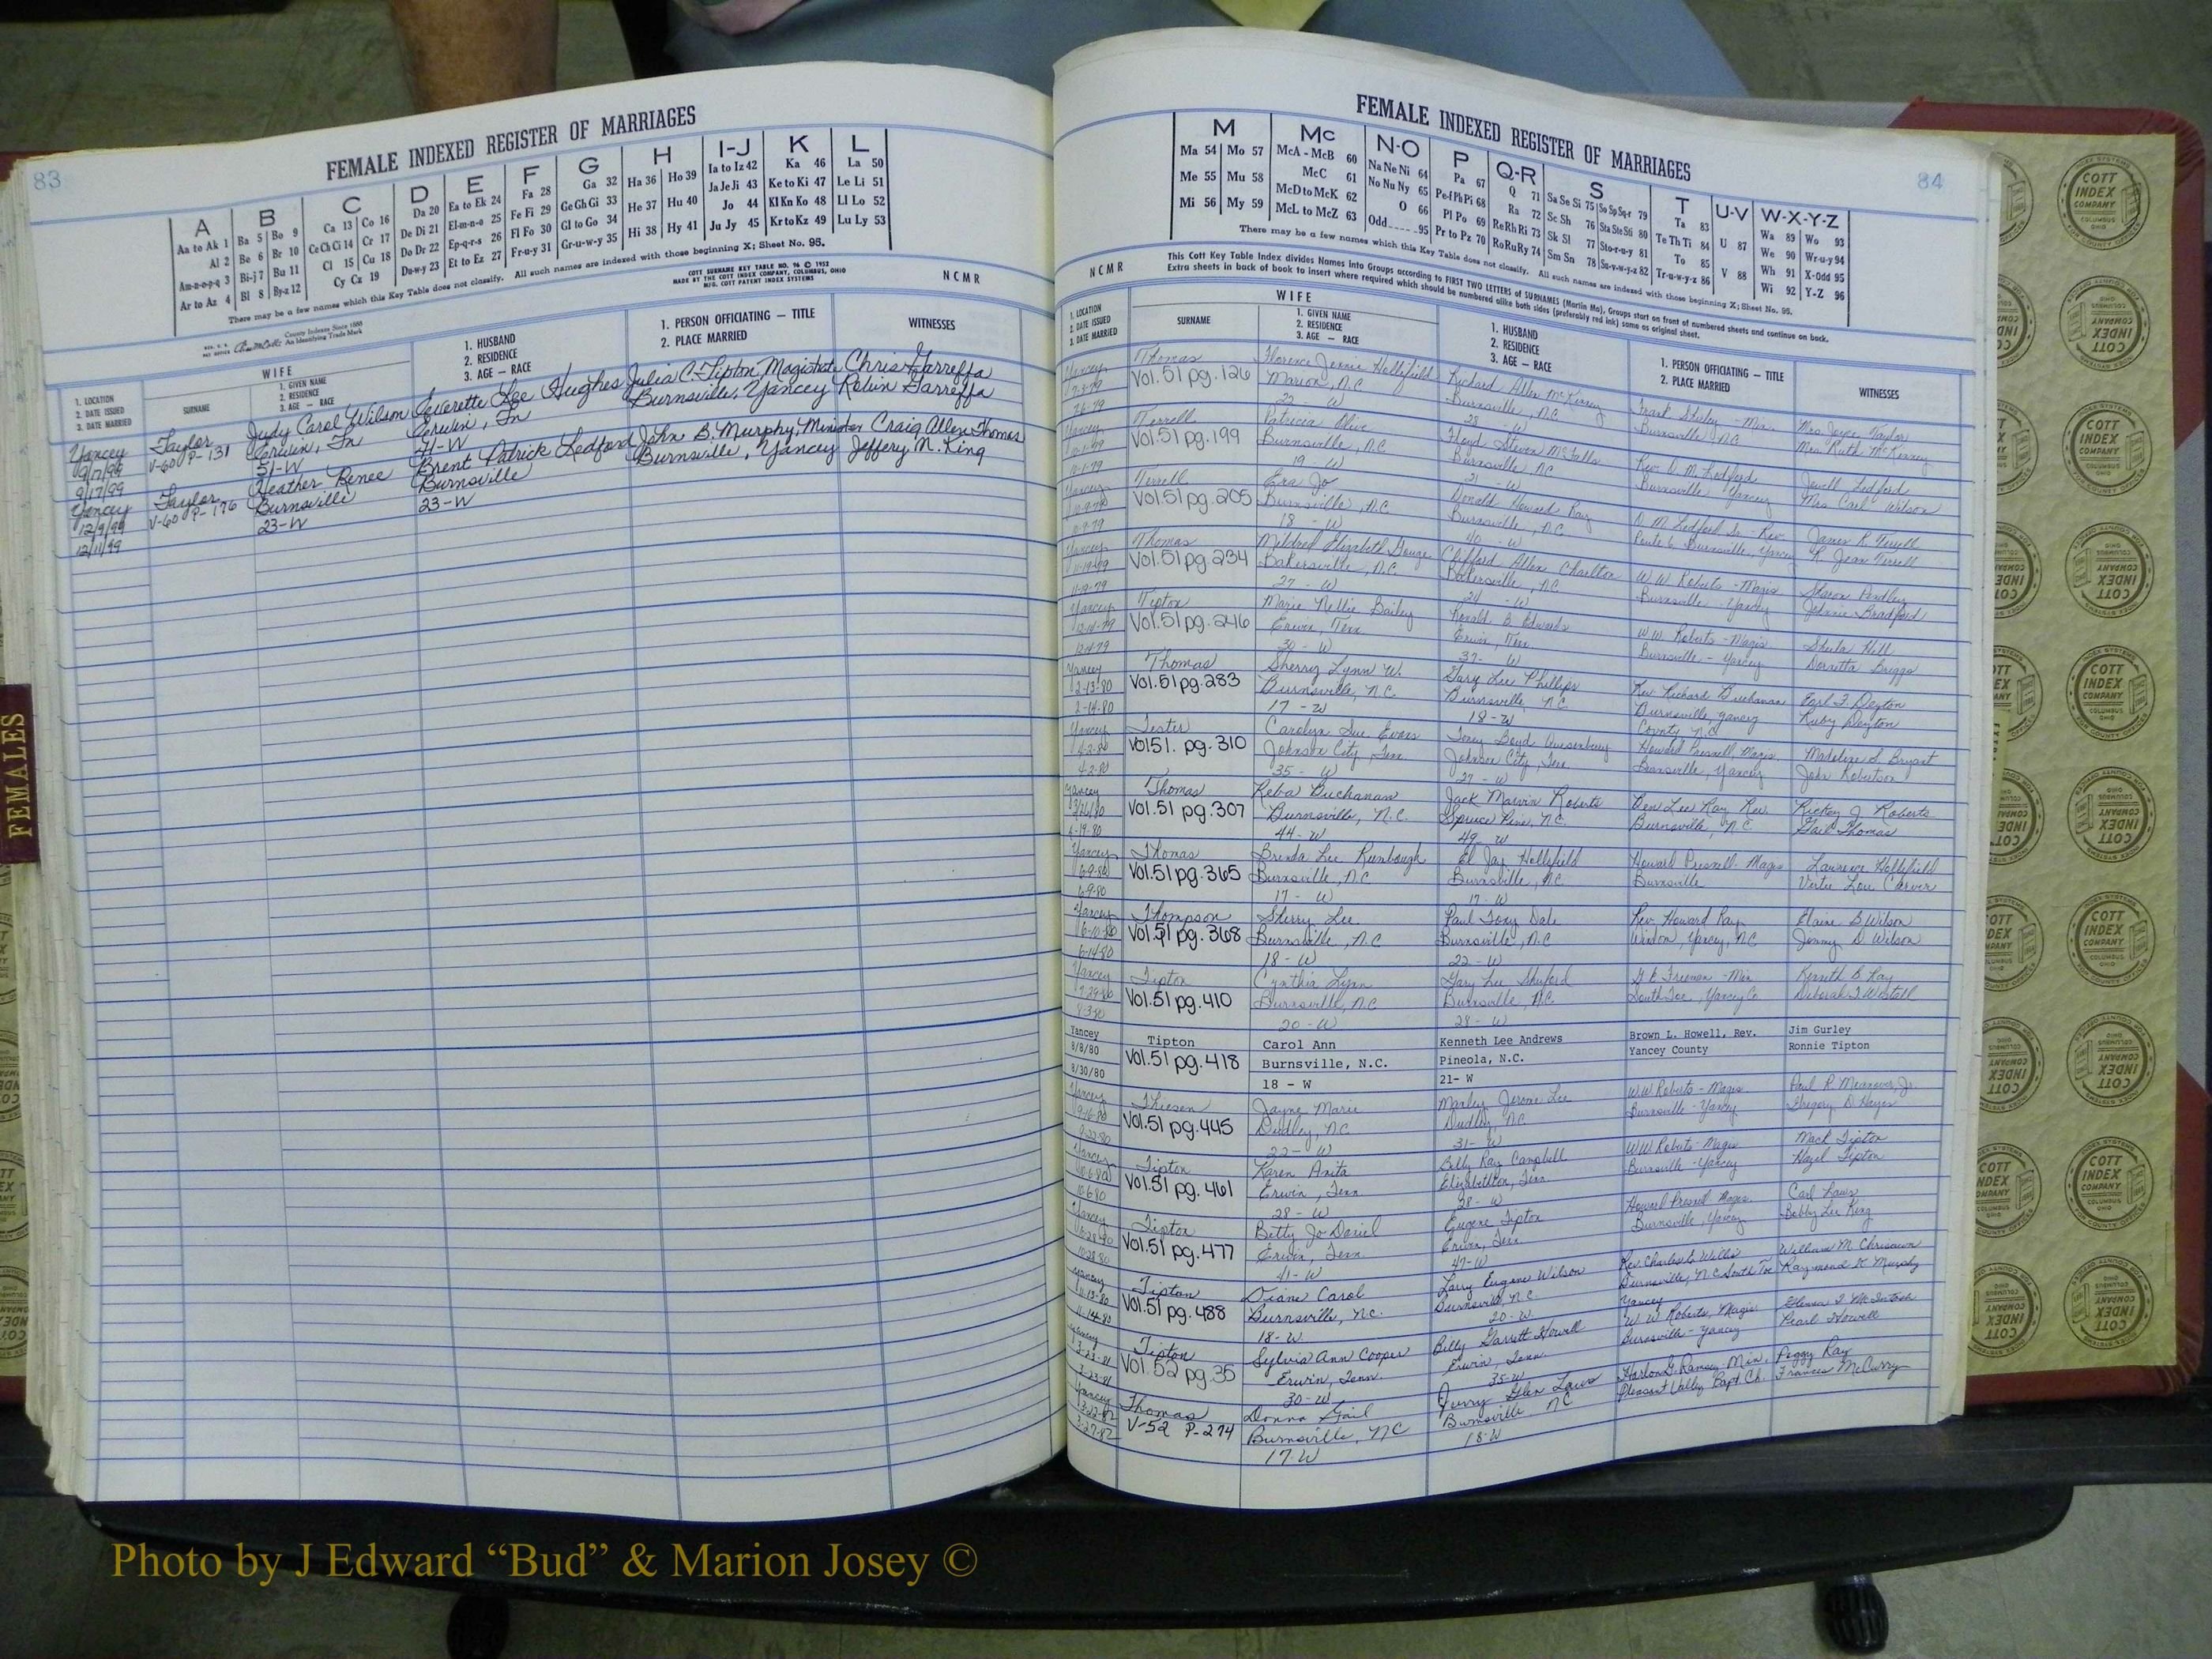 83
FEMALE INDEXED REGISTER OF MARRIAGES
A B C D E F G H I-J K L
Aa to Ak 1 Ba 5 Bo 9 Ca 13 Co 16 Da 20 Ea to Ek 24 Fa 28 Ga 32 Ha 36 Ho 39 Ia to Iz 42 Ka 46 La 50
Al 2 Be 6 Br 10 Ce Ch Ci 14 Cr 17 De Di 21 El-m-n-o 25 Fe Fi 29 Ge Gh Gi 33 He 37 Hu 40 Ja Je Ji 43 Ke to Ki 47 Le Li 51
Am-n-o-p-q 3 Bi-j 7 Bu 11 Cl 15 Cu 18 Do Dr 22 Ep-q-r-s 26 Fl Fo 30 Gl to Go 34 Hi 38 Hy 41 Jo 44 Kl Kn Ko 48 Ll Lo 52
Ar to Az 4 Bl 8 By-z 12 Cy Cz 19 Du-w-y 23 Et to Ez 27 Fr-u-y 31 Gr-u-w-y 35 Ju Jy 45 Kr to Kz 49 Lu Ly 53
There may be a few names which this Key Table does not classify. All such names are indexed with those beginning X; Sheet No. 95.
County Indexes Since 1888
An Identifying Trade Mark
COTT SURNAME KEY TABLE NO. 96 © 1952
MADE BY THE COTT INDEX COMPANY, COLUMBUS, OHIO
MFG. COTT PATENT INDEX SYSTEMS
NCMR
WIFE
1. LOCATION
2. DATE ISSUED
3. DATE MARRIED
SURNAME
1. GIVEN NAME
2. RESIDENCE
3. AGE — RACE
1. HUSBAND
2. RESIDENCE
3. AGE — RACE
1. PERSON OFFICIATING — TITLE
2. PLACE MARRIED
WITNESSES
Yancey Taylor Judy Carol Wilson Everette Lee Hughes Julia C. Tipton, Magistrate Chris Garreffa
9/17/99 V-60 P-131 Erwin, Tn Erwin, Tn Burnsville, Yancey Robin Garreffa
9/17/99 51-W 41-W
Yancey Taylor Heather Renee Brent Patrick Ledford John B. Murphy, Minister Craig Allen Thomas
12/9/99 V-60 P-176 Burnsville Burnsville Burnsville, Yancey Jeffery M. King
12/11/99 23-W 23-W
FEMALES
84
FEMALE INDEXED REGISTER OF MARRIAGES
M Mc N-O P Q-R S T U-V W-X-Y-Z
Ma 54 Mo 57 McA - McB 60 Na Ne Ni 64 Pa 67 Q 71 Sa Se Si 75 So Sp Sq-r 79 Ta 83 U 87 Wa 89 Wo 93
Me 55 Mu 58 McC 61 No Nu Ny 65 Pe-f Ph Pi 68 Ra 72 Sc Sh 76 Sta Ste Sti 80 Te Th Ti 84 V 88 We 90 Wr-u-y 94
Mi 56 My 59 McD to McK 62 O 66 Pl Po 69 Re Rh Ri 73 Sk Sl 77 Sto-r-u-y 81 To 85 Wh 91 X-Odd 95
McL to McZ 63 Odd 95 Pr to Pz 70 Ro Ru Ry 74 Sm Sn 78 Su-v-w-y-z 82 Tr-u-w-y-z 86 Wi 92 Y-Z 96
There may be a few names which this Key Table does not classify. All such names are indexed with those beginning X; Sheet No. 95.
NCMR
This Cott Key Table Index divides Names into Groups according to FIRST TWO LETTERS of SURNAMES (Martin Ma), Groups start on front of numbered sheets and continue on back.
Extra sheets in back of book to insert where required which should be numbered alike both sides (preferably red ink) same as original sheet.
WIFE
1. LOCATION
2. DATE ISSUED
3. DATE MARRIED
SURNAME
1. GIVEN NAME
2. RESIDENCE
3. AGE — RACE
1. HUSBAND
2. RESIDENCE
3. AGE — RACE
1. PERSON OFFICIATING — TITLE
2. PLACE MARRIED
WITNESSES
Yancey Thomas Florence Jennie Hollifield Richard Allen McKinney Mrs. Joyce Taylor
Vol.51 pg.126 Marion, N.C. Burnsville, N.C. Burnsville N.C. Mrs. Ruth McKinney
22 - W 28 - W
Yancey Terrell Patricia Olive Floyd Steven McFalls Rev. O. M. Ledford Jewell Ledford
Vol.51 pg.199 Burnsville, N.C Burnsville, NC Burnsville Yancey Mrs. Carl Wilson
19 - W 21 - W
Yancey Terrell Era Jo Donald Howard Ray O. M. Ledford Sr - Rev. James R. Terrell
Vol.51 pg.205 Burnsville, N.C Burnsville, N.C. Route 6, Burnsville, Yancey R. Jean Terrell
18 - W 40 - W
Yancey Thomas Mildred Elizabeth Gouge Clifford Allen Charlton W W Roberts - Magis Sharon Pendley
Vol.51 pg.234 Bakersville, N.C. Bakersville, N.C Burnsville - Yancey Johnnie Bradford
27 - W 24 - W
Yancey Tipton Marie Nellie Bailey Ronald E Edwards W W Roberts - Magis Sheila Hill
12-4-79 Vol.51 pg.246 Erwin, Tenn Erwin, Tenn Burnsville - Yancey Dorretta Briggs
30 - W 37- W
Yancey Thomas Sherry Lynn W. Gary Lee Phillips Rev. Richard Buchanan Earl F. Deyton
2-13-80 Vol.51 pg.283 Burnsville, N.C. Burnsville, N.C Burnsville, Yancey Ruby Deyton
2-14-80 17 - W 18 - W County N.C
Yancey Tester Carolyn Sue Evans Tony Boyd Quesenbury Howard Presnell, Magis. Madeline S. Bryant
4-2-80 Vol51. pg.310 Johnson City, Tenn Johnson City, Tenn Burnsville, Yancey John Robertson
4-2-80 35 - W 27 - W
Yancey Thomas Reba Buchanan Jack Marvin Roberts Ben Lee Ray Rev. Rickey J. Roberts
3/26/80 Vol.51 pg.307 Burnsville, N.C. Spruce Pine, N.C. Burnsville, N.C. Gail Thomas
44 - W 49 - W
Yancey Thomas Brenda Lee Runbough El Jay Hollifield Howard Presnell - Magis Lawrence Hollifield
6-9-80 Vol.51 pg.365 Burnsville, N.C Burnsville, N.C. Burnsville Virtie Lou Carver
6-9-80 17 - W 17 - W
Yancey Thompson Sherry Lee Paul Tony Dale Rev. Howard Ray Elaine B Wilson
6-10-80 Vol.51 pg.368 Burnsville, N.C Burnsville, N.C Yancey, N.C Jimmy D Wilson
6-14-80 18 - W 22 - W
Yancey Tipton Cynthia Lynn Gary Lee Shuford G E Freeman - Min Kenneth B. Ray
7-29-80 Vol.51 pg.410 Burnsville, N.C Burnsville, N.C. South Toe, Yancey Co Deborah T Westall
8-3-80 20 - W 28 - W
Yancey Tipton Carol Ann Kenneth Lee Andrews Brown L. Howell, Rev. Jim Gurley
8/8/80 Vol.51 pg.418 Burnsville, N.C. Pineola, N.C. Yancey County Ronnie Tipton
8/30/80 18 - W 21- W
Yancey Thiesen Jayne Marie Manley Jerome Lee W W Roberts - Magis
9-16-80 Vol.51 pg.445 Dudley, N.C Dudley, N.C. Burnsville - Yancey Gregory D Hayes
9-22-80 22 - W 31- W
Yancey Tipton Karen Anita Billy Ray Campbell W W Roberts - Magis Mack Tipton
10-6-80 Vol.51 pg. 461 Erwin, Tenn Elizabethton, Tenn Burnsville - Yancey Hazel Tipton
10-6-80 28 - W 38 - W
Yancey Tipton Betty Jo Daniel Eugene Tipton Howard Presnell Magis. Carl Laws
10-28-80 Vol.51 pg.477 Erwin, Tenn Erwin, Tenn Burnsville, Yancey Bobby Lee King
10-28-80 41 - W 47-W
Yancey Tipton Diane Carol Larry Eugene Wilson Rev. Charles C. Willis William M. Chrisawn
11-13-80 Vol.51 pg.488 Burnsville, N.C. Burnsville, N.C. Burnsville, N.C. South Toe Raymond K Murphy
11-14-80 18 - W 20 - W Yancey
Yancey Tipton Sylvia Ann Cooper Billy Garrett Howell W. W. Roberts, Magis Glenna F. McIntosh
3-23-81 Vol.52 pg.35 Erwin, Tenn. Erwin, Tenn. Burnsville - Yancey Pearl Howell
3-23-81 30 - W 35-W
Yancey Thomas Donna Gail Jerry Glen Laws Harlon G. Ramsey, Min. Peggy Ray
V-52 P-274 Burnsville, NC Burnsville NC Pleasant Valley Bapt. Ch. Frances McCurry
3-27-82 17-W 18-W
COTT INDEX COMPANY COLUMBUS OHIO
Photo by J Edward “Bud” & Marion Josey ©